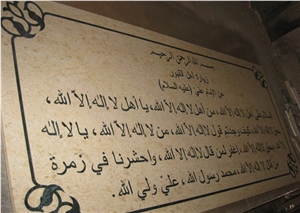 بسم الله الرحمن الرحيم
زيارة أهل القبور
عن الإمام علي (عليه السلام)
السلام على أهل لا إله إلا الله، من أهل لا إله إلا الله، يا أهل لا إله إلا الله،
كيف وجدتم قول لا إله إلا الله، من لا إله إلا الله، يا لا إله
إلا الله، بحق لا إله إلا الله، إغفر لمن قال لا إله إلا الله، واحشرنا في زمرة
من قال لا إله إلا الله، محمد رسول الله، علي ولي الله.